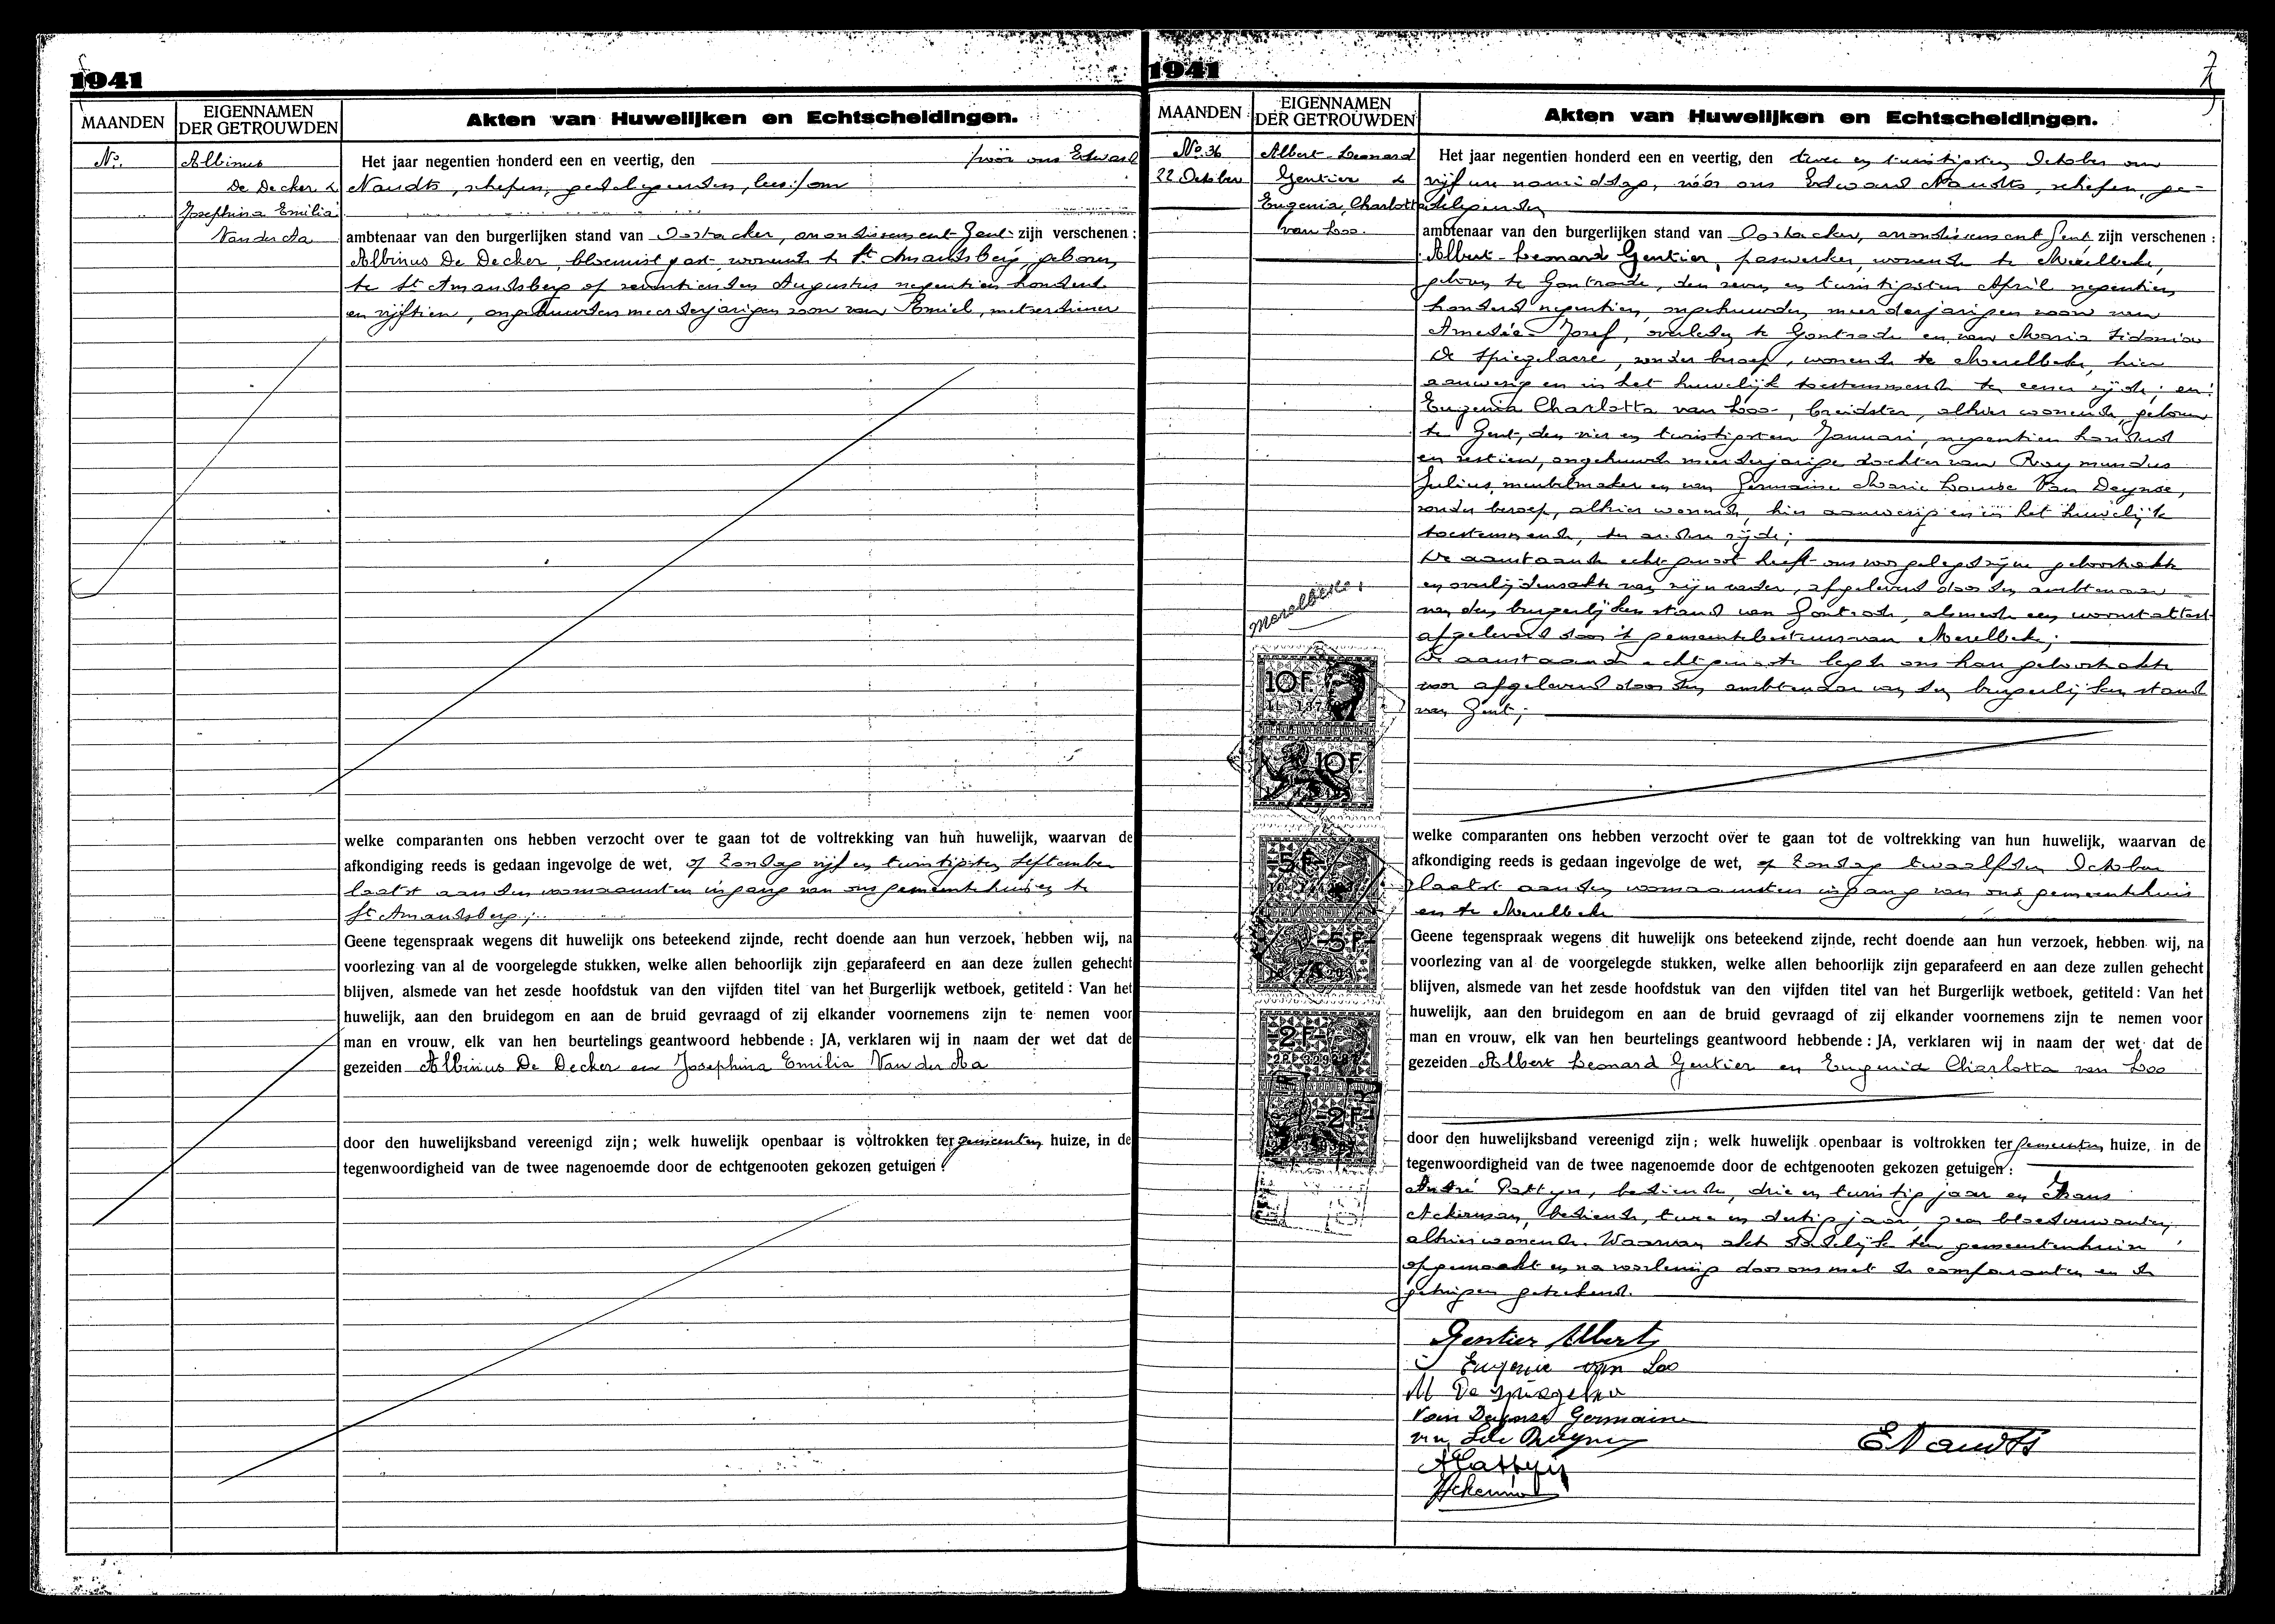 1941
MAANDEN
EIGENNAMEN
DER GETROUWDEN
Akten van Huwelijken en Echtscheidingen.
No.
Albinus
De Decker &
Josephina Emilia
Van der Aa
Het jaar negentien honderd een en veertig, den vóór ons Edward
Naudts, schepen, gedelegeerden, lees:/ om
ambtenaar van den burgerlijken stand van Oostacker, arrondissement Gent zijn verschenen :
Albinus De Decker, bloemist, wonende te St Amandsberg, geboren
te St Amandsberg op zeventienden Augustus negentien honderd
en vijftien, ongehuwden meerderjarigen zoon van Emiel, metserdiener
welke comparanten ons hebben verzocht over te gaan tot de voltrekking van hun huwelijk, waarvan de
afkondiging reeds is gedaan ingevolge de wet, op Zondag vijf en twintigsten September
laatst aan den voornaamsten ingang van ons gemeentehuis en te
St Amandsberg;
Geene tegenspraak wegens dit huwelijk ons beteekend zijnde, recht doende aan hun verzoek, hebben wij, na
voorlezing van al de voorgelegde stukken, welke allen behoorlijk zijn geparafeerd en aan deze zullen gehecht
blijven, alsmede van het zesde hoofdstuk van den vijfden titel van het Burgerlijk wetboek, getiteld : Van het
huwelijk, aan den bruidegom en aan de bruid gevraagd of zij elkander voornemens zijn te nemen voor
man en vrouw, elk van hen beurtelings geantwoord hebbende : JA, verklaren wij in naam der wet dat de
gezeiden Albinus De Decker en Josephina Emilia Van der Aa
door den huwelijksband vereenigd zijn; welk huwelijk openbaar is voltrokken ter gemeenten huize, in de
tegenwoordigheid van de twee nagenoemde door de echtgenooten gekozen getuigen :
1941
MAANDEN
EIGENNAMEN
DER GETROUWDEN
Akten van Huwelijken en Echtscheidingen.
No. 36
22 October
Albert-Leonard
Gentier &
Eugenia Charlotta
van Loo.
Het jaar negentien honderd een en veertig, den twee en twintigsten October om
vijf ure namiddag, vóór ons Edward Naudts, schepen, ge-
delegeerden
ambtenaar van den burgerlijken stand van Oostacker, arrondissement Gent zijn verschenen :
Albert-Leonard Gentier, paswerker, wonende te Merelbeke,
geboren te Gontrode, den zeven en twintigsten April negentien
honderd negentien, ongehuwden meerderjarigen zoon van
Amedée-Jozef, overleden te Gontrode en van Maria Sidonia
De Spiegelaere, zonder beroep, wonende te Merelbeke, hier
aanwezig en in het huwelijk toestemmende ter eener zijde; en:
Eugenia Charlotta van Loo, breidster, alhier wonende, geboren
te Gent, den vier en twintigsten Januari, negentien honderd
en zestien, ongehuwde meerderjarige dochter van Raymundus
Julius, meubelmaker en van Germaine Marie Louise Van Deynse,
zonder beroep, alhier wonende, hier aanwezig en in het huwelijk
toestemmende, ter andere zijde;
De aanstaande echtgenoot heeft ons voorgelegd zijne geboorteakte
en overlijdensakte van zijn vader, afgeleverd door den ambtenaar
van den burgerlijken stand van Gontrode, alsmede een woonstattest
afgeleverd door 't gemeentebestuur van Merelbeke;
De aanstaande echtgenoote legde ons hare geboorteakte
voor afgeleverd door den ambtenaar van den burgerlijken stand
van Gent;
Merelbeke,
10F.
10F.
5F
5F
2F
2F
welke comparanten ons hebben verzocht over te gaan tot de voltrekking van hun huwelijk, waarvan de
afkondiging reeds is gedaan ingevolge de wet, op Zondag twaalfden October
laatst aan den voornaamsten ingang van ons gemeentehuis
en te Merelbeke
Geene tegenspraak wegens dit huwelijk ons beteekend zijnde, recht doende aan hun verzoek, hebben wij, na
voorlezing van al de voorgelegde stukken, welke allen behoorlijk zijn geparafeerd en aan deze zullen gehecht
blijven, alsmede van het zesde hoofdstuk van den vijfden titel van het Burgerlijk wetboek, getiteld : Van het
huwelijk, aan den bruidegom en aan de bruid gevraagd of zij elkander voornemens zijn te nemen voor
man en vrouw, elk van hen beurtelings geantwoord hebbende : JA, verklaren wij in naam der wet dat de
gezeiden Albert Leonard Gentier en Eugenia Charlotta van Loo
door den huwelijksband vereenigd zijn; welk huwelijk openbaar is voltrokken ter gemeenten huize, in de
tegenwoordigheid van de twee nagenoemde door de echtgenooten gekozen getuigen :
André Pattyn, bediende, drie en twintig jaar en Frans
Ackerman, bediende, twee en dertig jaar, geen bloedverwanten,
alhier wonende. Waarvan akte dadelijk ten gemeentenhuize
opgemaakt en na voorlezing door ons met de comparanten en de
getuigen geteekend.
Gentier Albert
Eugenie van Loo
M De Spiegelaere
Van Deynse Germaine
van Loo Raym
A Pattyn
Ackerman
E Naudts